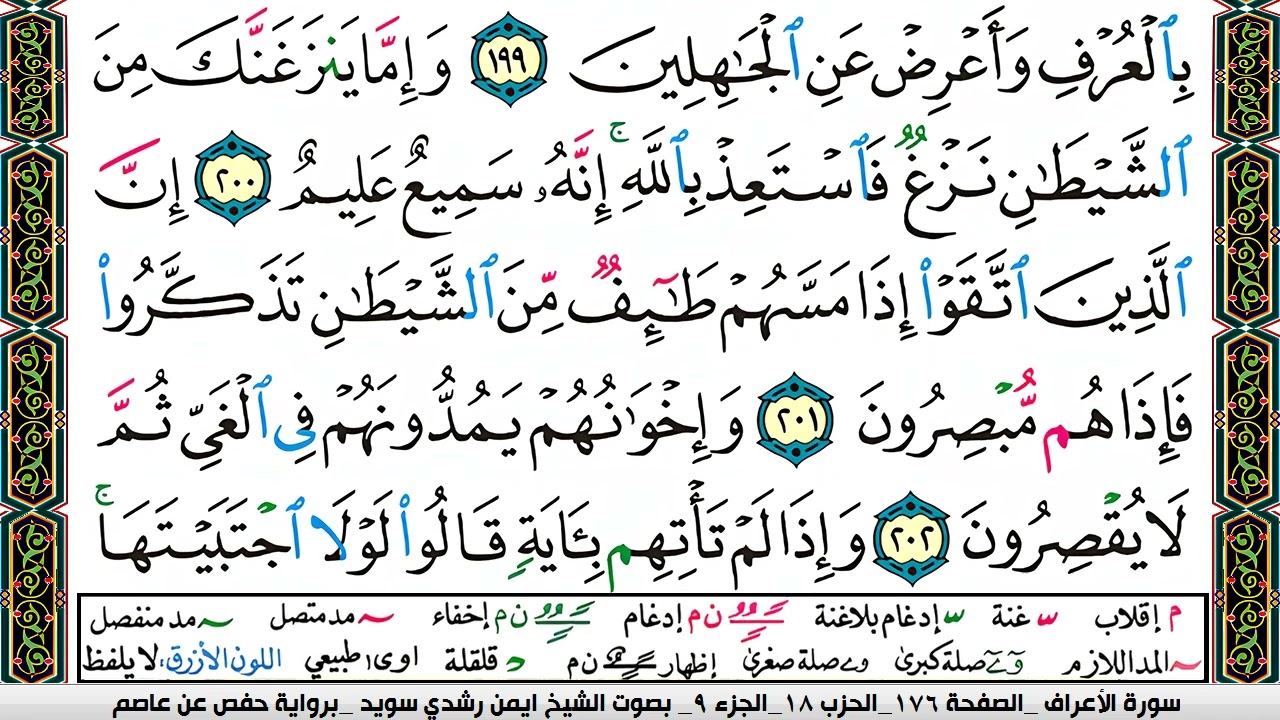 بِٱلۡعُرۡفِ وَأَعۡرِضۡ عَنِ ٱلۡجَٰهِلِينَ ١٩٩ وَإِمَّا يَنزَغَنَّكَ مِنَ
ٱلشَّيۡطَٰنِ نَزۡغٞ فَٱسۡتَعِذۡ بِٱللَّهِۚ إِنَّهُۥ سَمِيعٌ عَلِيمٌ ٢٠٠ إِنَّ
ٱلَّذِينَ ٱتَّقَوۡاْ إِذَا مَسَّهُمۡ طَٰٓئِفٞ مِّنَ ٱلشَّيۡطَٰنِ تَذَكَّرُواْ
فَإِذَا هُم مُّبۡصِرُونَ ٢٠١ وَإِخۡوَٰنُهُمۡ يَمُدُّونَهُمۡ فِي ٱلۡغَيِّ ثُمَّ
لَا يُقۡصِرُونَ ٢٠٢ وَإِذَا لَمۡ تَأۡتِهِم بِـَٔايَةٖ قَالُواْ لَوۡلَا ٱجۡتَبَيۡتَهَاۚ
م إقلاب ّ غنة ّ إدغام بلاغنة ن م إدغام ن م إخفاء ~ مد متصل ~ مد منفصل
~ المد اللازم و ے صلة كبرى و ے صلة صغرى إظهار ن م د قلقلة ا و ى طبيعي اللون الأزرق، لا يلفظ
سورة الأعراف _الصفحة ١٧٦_الحزب ١٨_الجزء ٩_ بصوت الشيخ ايمن رشدي سويد _برواية حفص عن عاصم